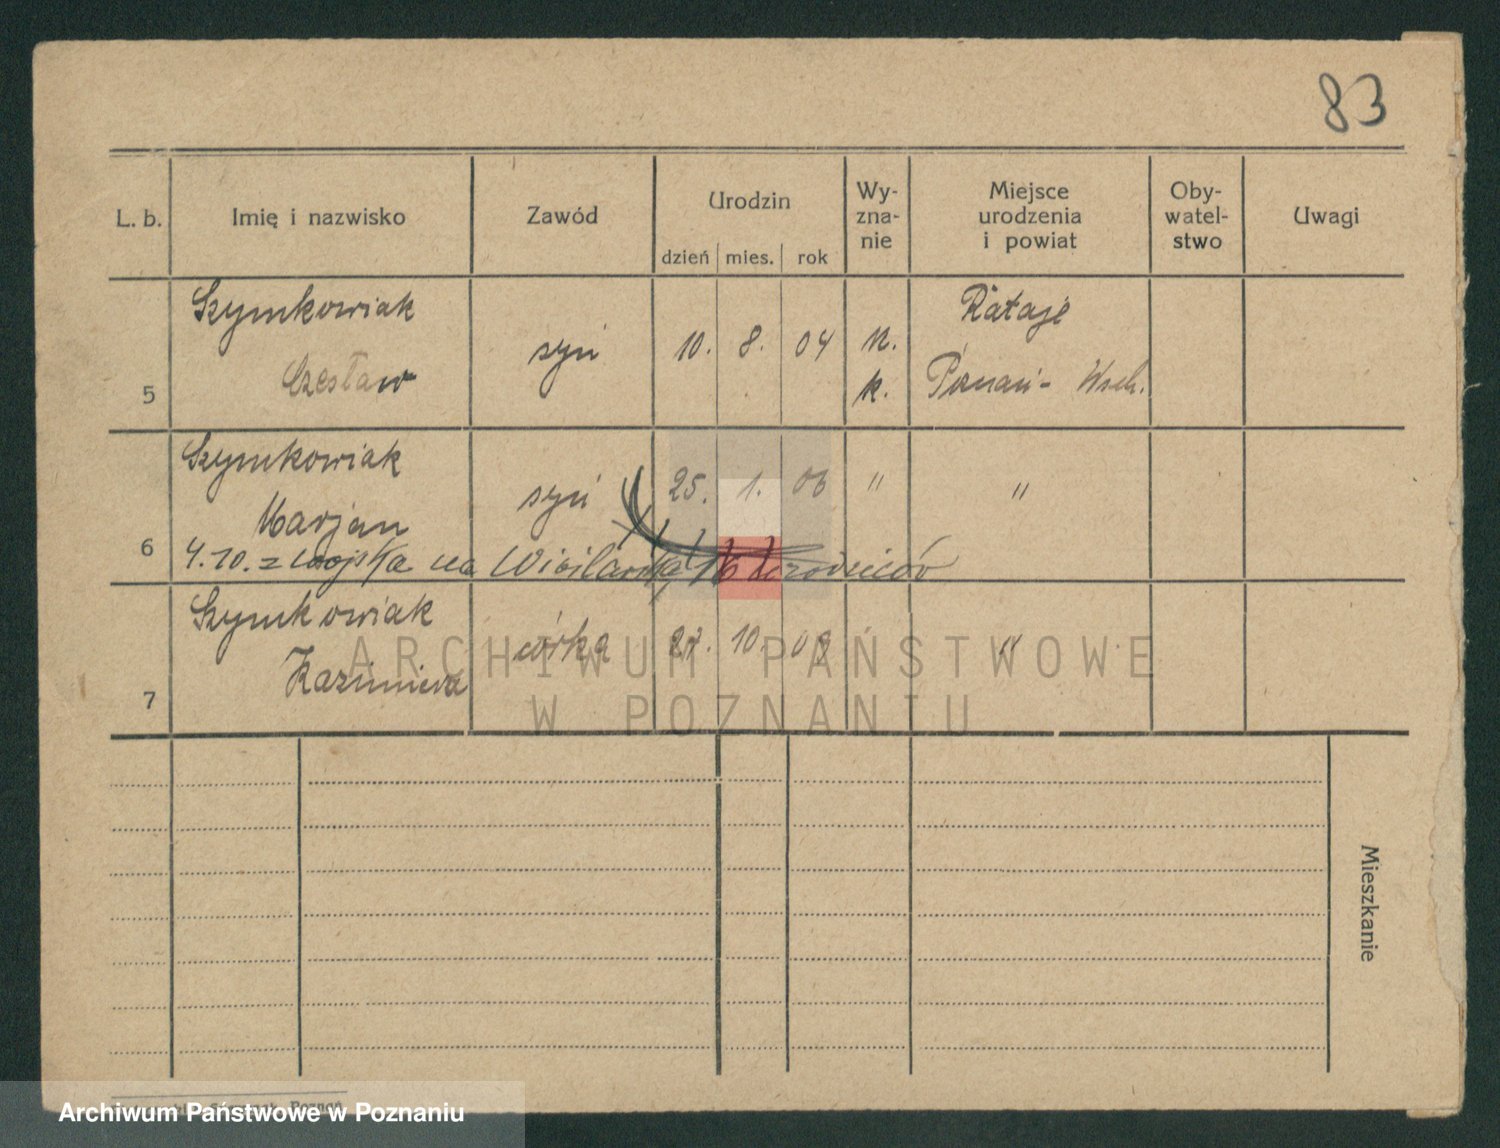 83
L. b.
Imię i nazwisko
Zawód
Urodzin
dzień mies. rok
Wy-
zna-
nie
Miejsce
urodzenia
i powiat
Oby-
watel-
stwo
Uwagi
5
Szymkowiak
Czesław
syn
10. 8. 04
k.
Rataje
Poznań- Wsch.
6
Szymkowiak
Marjan
syn
25. 1. 06
"
"
4.10. z wojska na 16 rodziców
7
Szymkowiak
Kazimiera
córka
10.
"
Mieszkanie
ARCHIWUM PAŃSTWOWE
W POZNANIU
Poznań
Archiwum Państwowe w Poznaniu